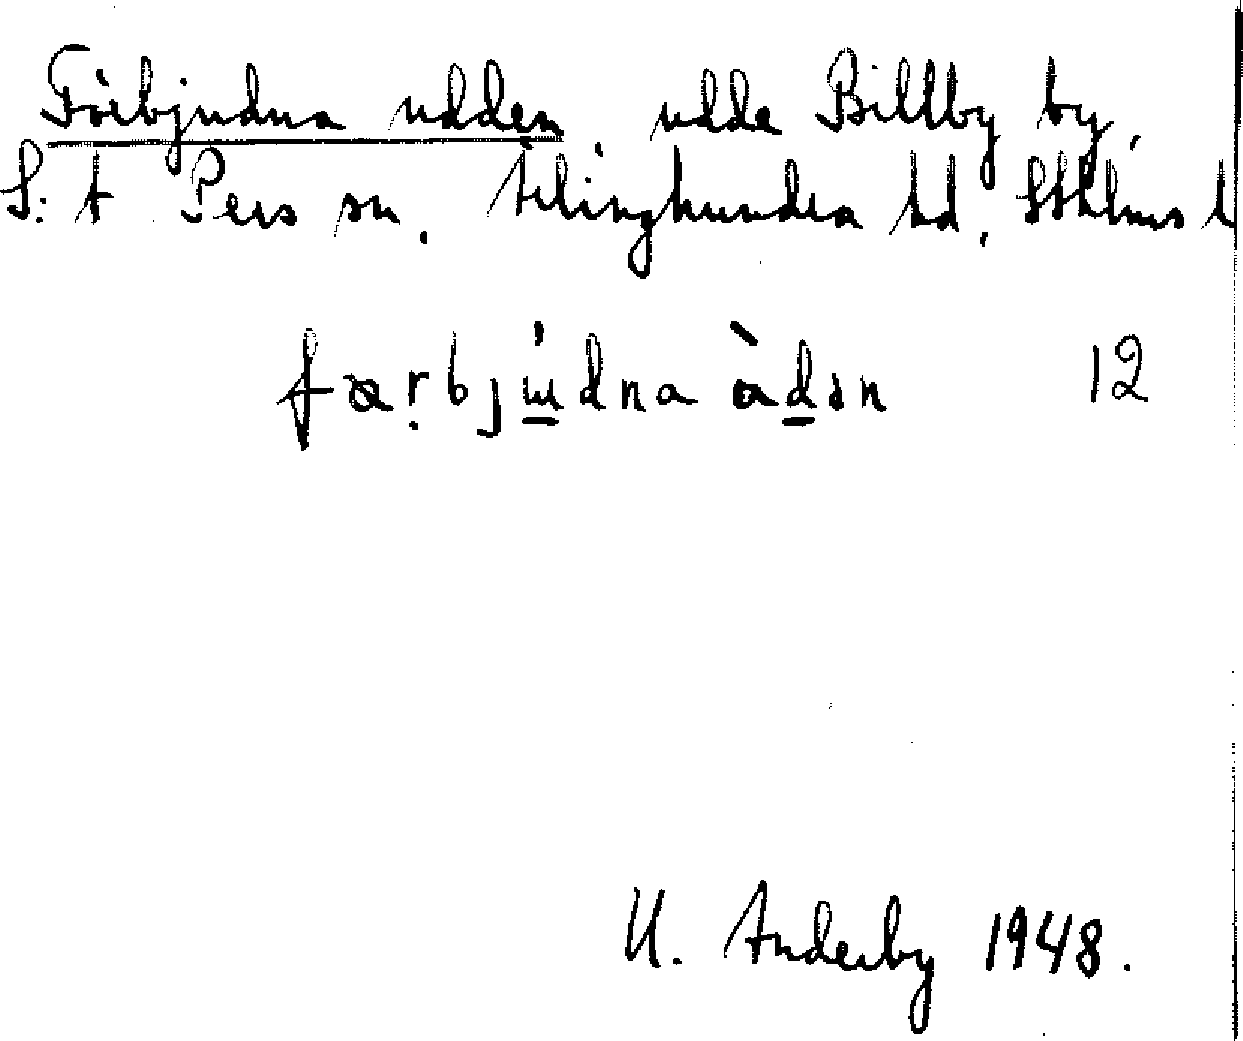 Förbjudna udden, udde Billby by,
S:t Pers sn. Ärlinghundra hd, Sthlms l
færbjúdna àdən 12
U. Anderby 1948.